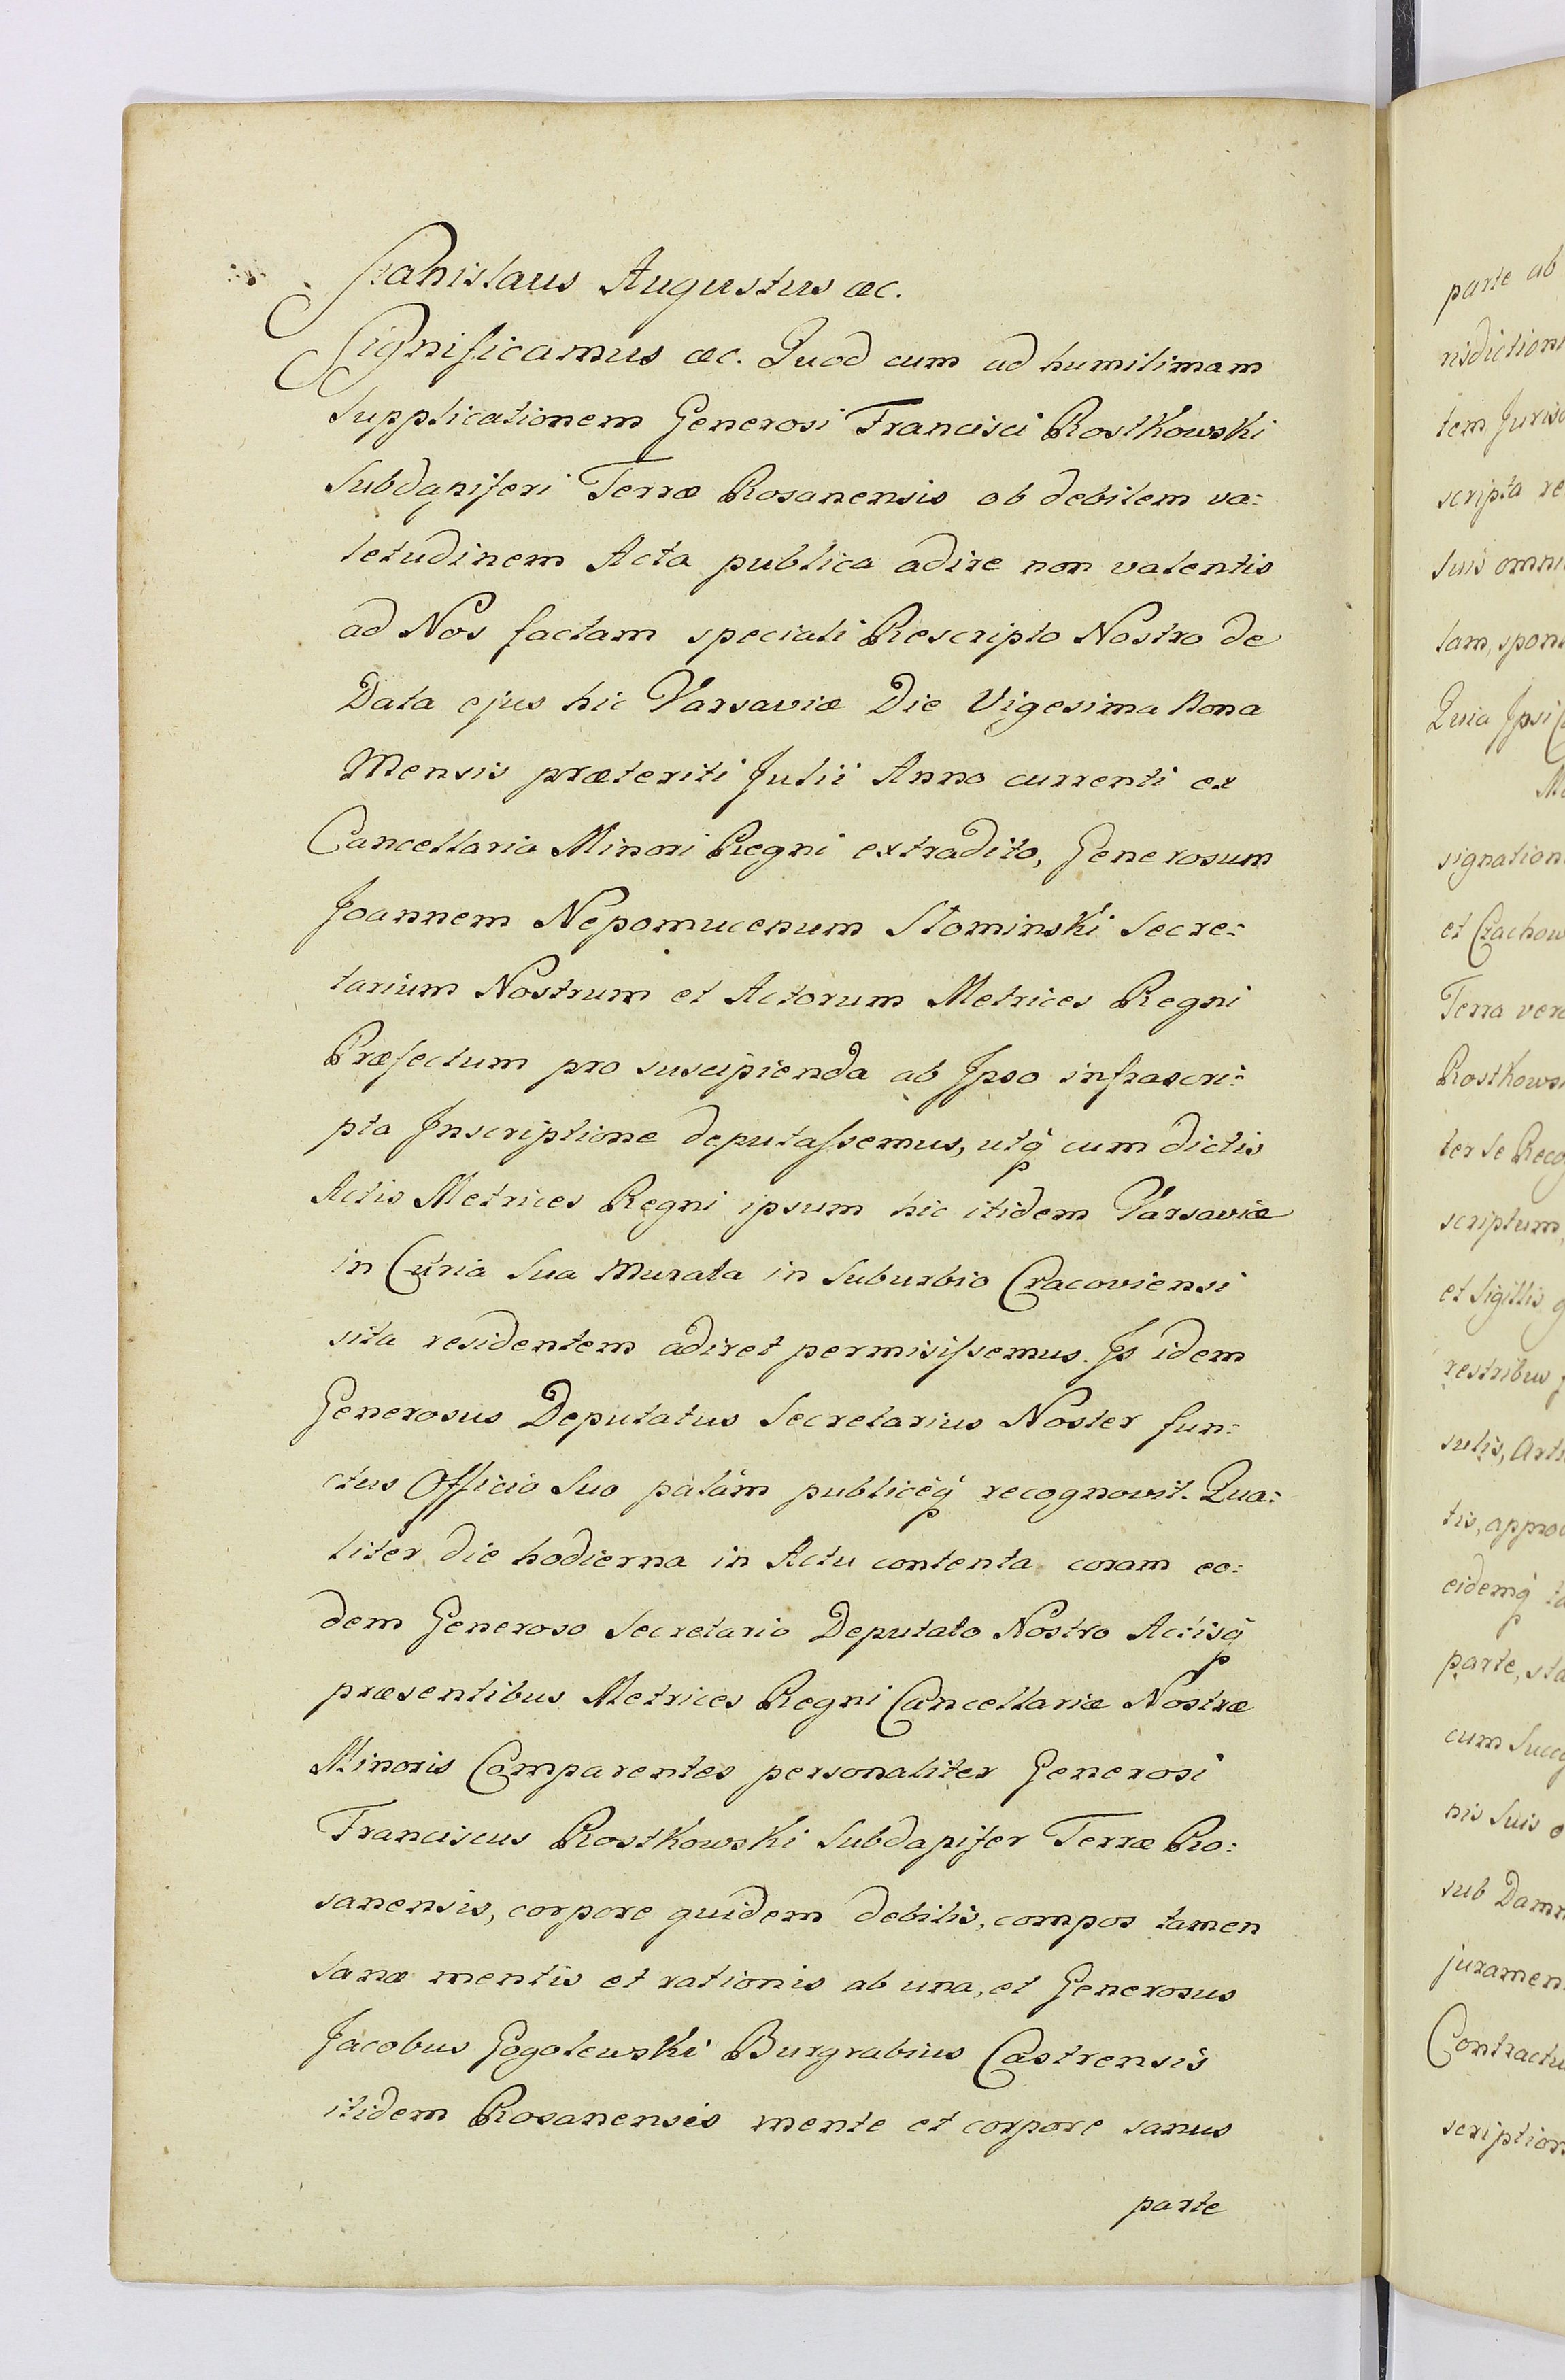 Stanislaus Augustus &c.
Significamus &c. Quod cum ad humilimam
Supplicationem Generosi Francisci Rostkowski
Subdapiferi Terræ Rosanensis ob debilem va=
letudinem Acta publica adire non valentis
ad Nos factam speciali Rescripto Nostro de
Data ejus hic Varsaviæ Die Vigesima Nona
Mensis præteriti Julii Anno currenti ex
Cancellaria Minori Regni extradito, Generosum
Joannem Nepomucenum Słominski Secre=
tarium Nostrum et Actorum Metrices Regni
Præfectum pro suscipienda ab Ipso infrascri=
pta Inscriptione deputassemus, utq́ cum dictis
Actis Metrices Regni ipsum hic itidem Varsaviæ
in Curia Sua Murata in Suburbio Cracoviensi
sita residentem adiret permisissemus. Is idem
Generosus Deputatus Secretarius Noster fun=
ctus Officio Suo palàm publicèq́ recognovit. Qua=
liter die hodierna in Actu contenta coram eo=
dem Generoso Secretario Deputato Nostro Actisq́
præsentibus Metrices Regni Cancellariæ Nostræ
Minoris Comparentes personaliter Generosi
Franciscus Rostkowski Subdapifer Terræ Ro=
sanensis, corpore quidem debilis, compos tamen
sanæ mentis et rationis ab una, et Generosus
Jacobus Gogolewski Burgrabius Castrensis
itidem Rosanensis mente et corpore sanus
parte
parte ab
risdictioni
tem Jurisd
scripta re
suis omni
tam, spon
Quia Ipsi
signation
et Czachow
Terra vero
Rostkows
ter se Reco
scriptum,
et Sigillis
restribus
sulis, Arti
tis, appro
eidemq́
parte, sta
cum Succ
nis Suis o
sub Damn
juramen
Contractu
scription